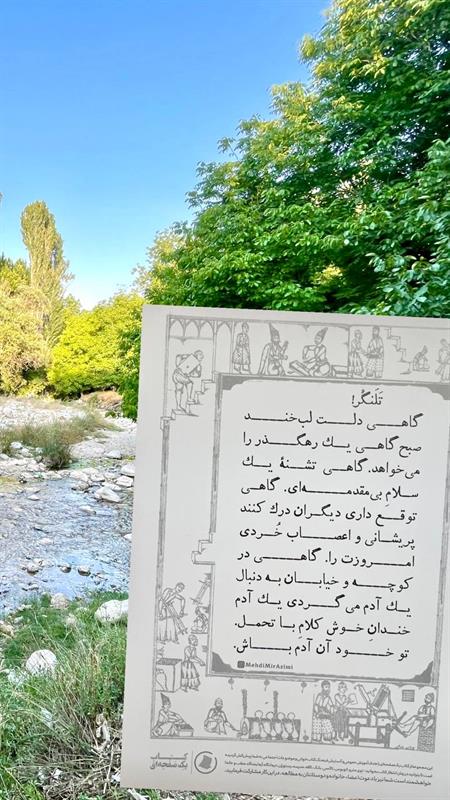 تَلَنگُر!
گاهی دلت لب‌خند
صبح‌گاهی یك رهگذر را
می‌خواهد. گاهی تشنۀ یك
سلامِ بی‌مقدمه‌ای. گاهی
توقع داری دیگران درك کنند
پریشانی و اعصاب خُردی
امروزت را. گاهی در
کوچه و خیابان به دنبال
یك آدم می‌گردی یك آدم
خندان خوش کلامِ با تحمل.
تو خود آن آدم باش.
MehdiMirAzimi
کتاب
یک صفحه‌ای